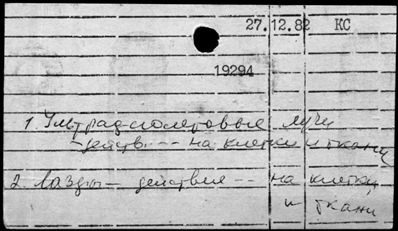 27.12.82 КС
19294
1 Ультрафиолетовые лучи
- действ. -- на клетки и ткани
2 Лазеры - действие -- на клетки
и ткани